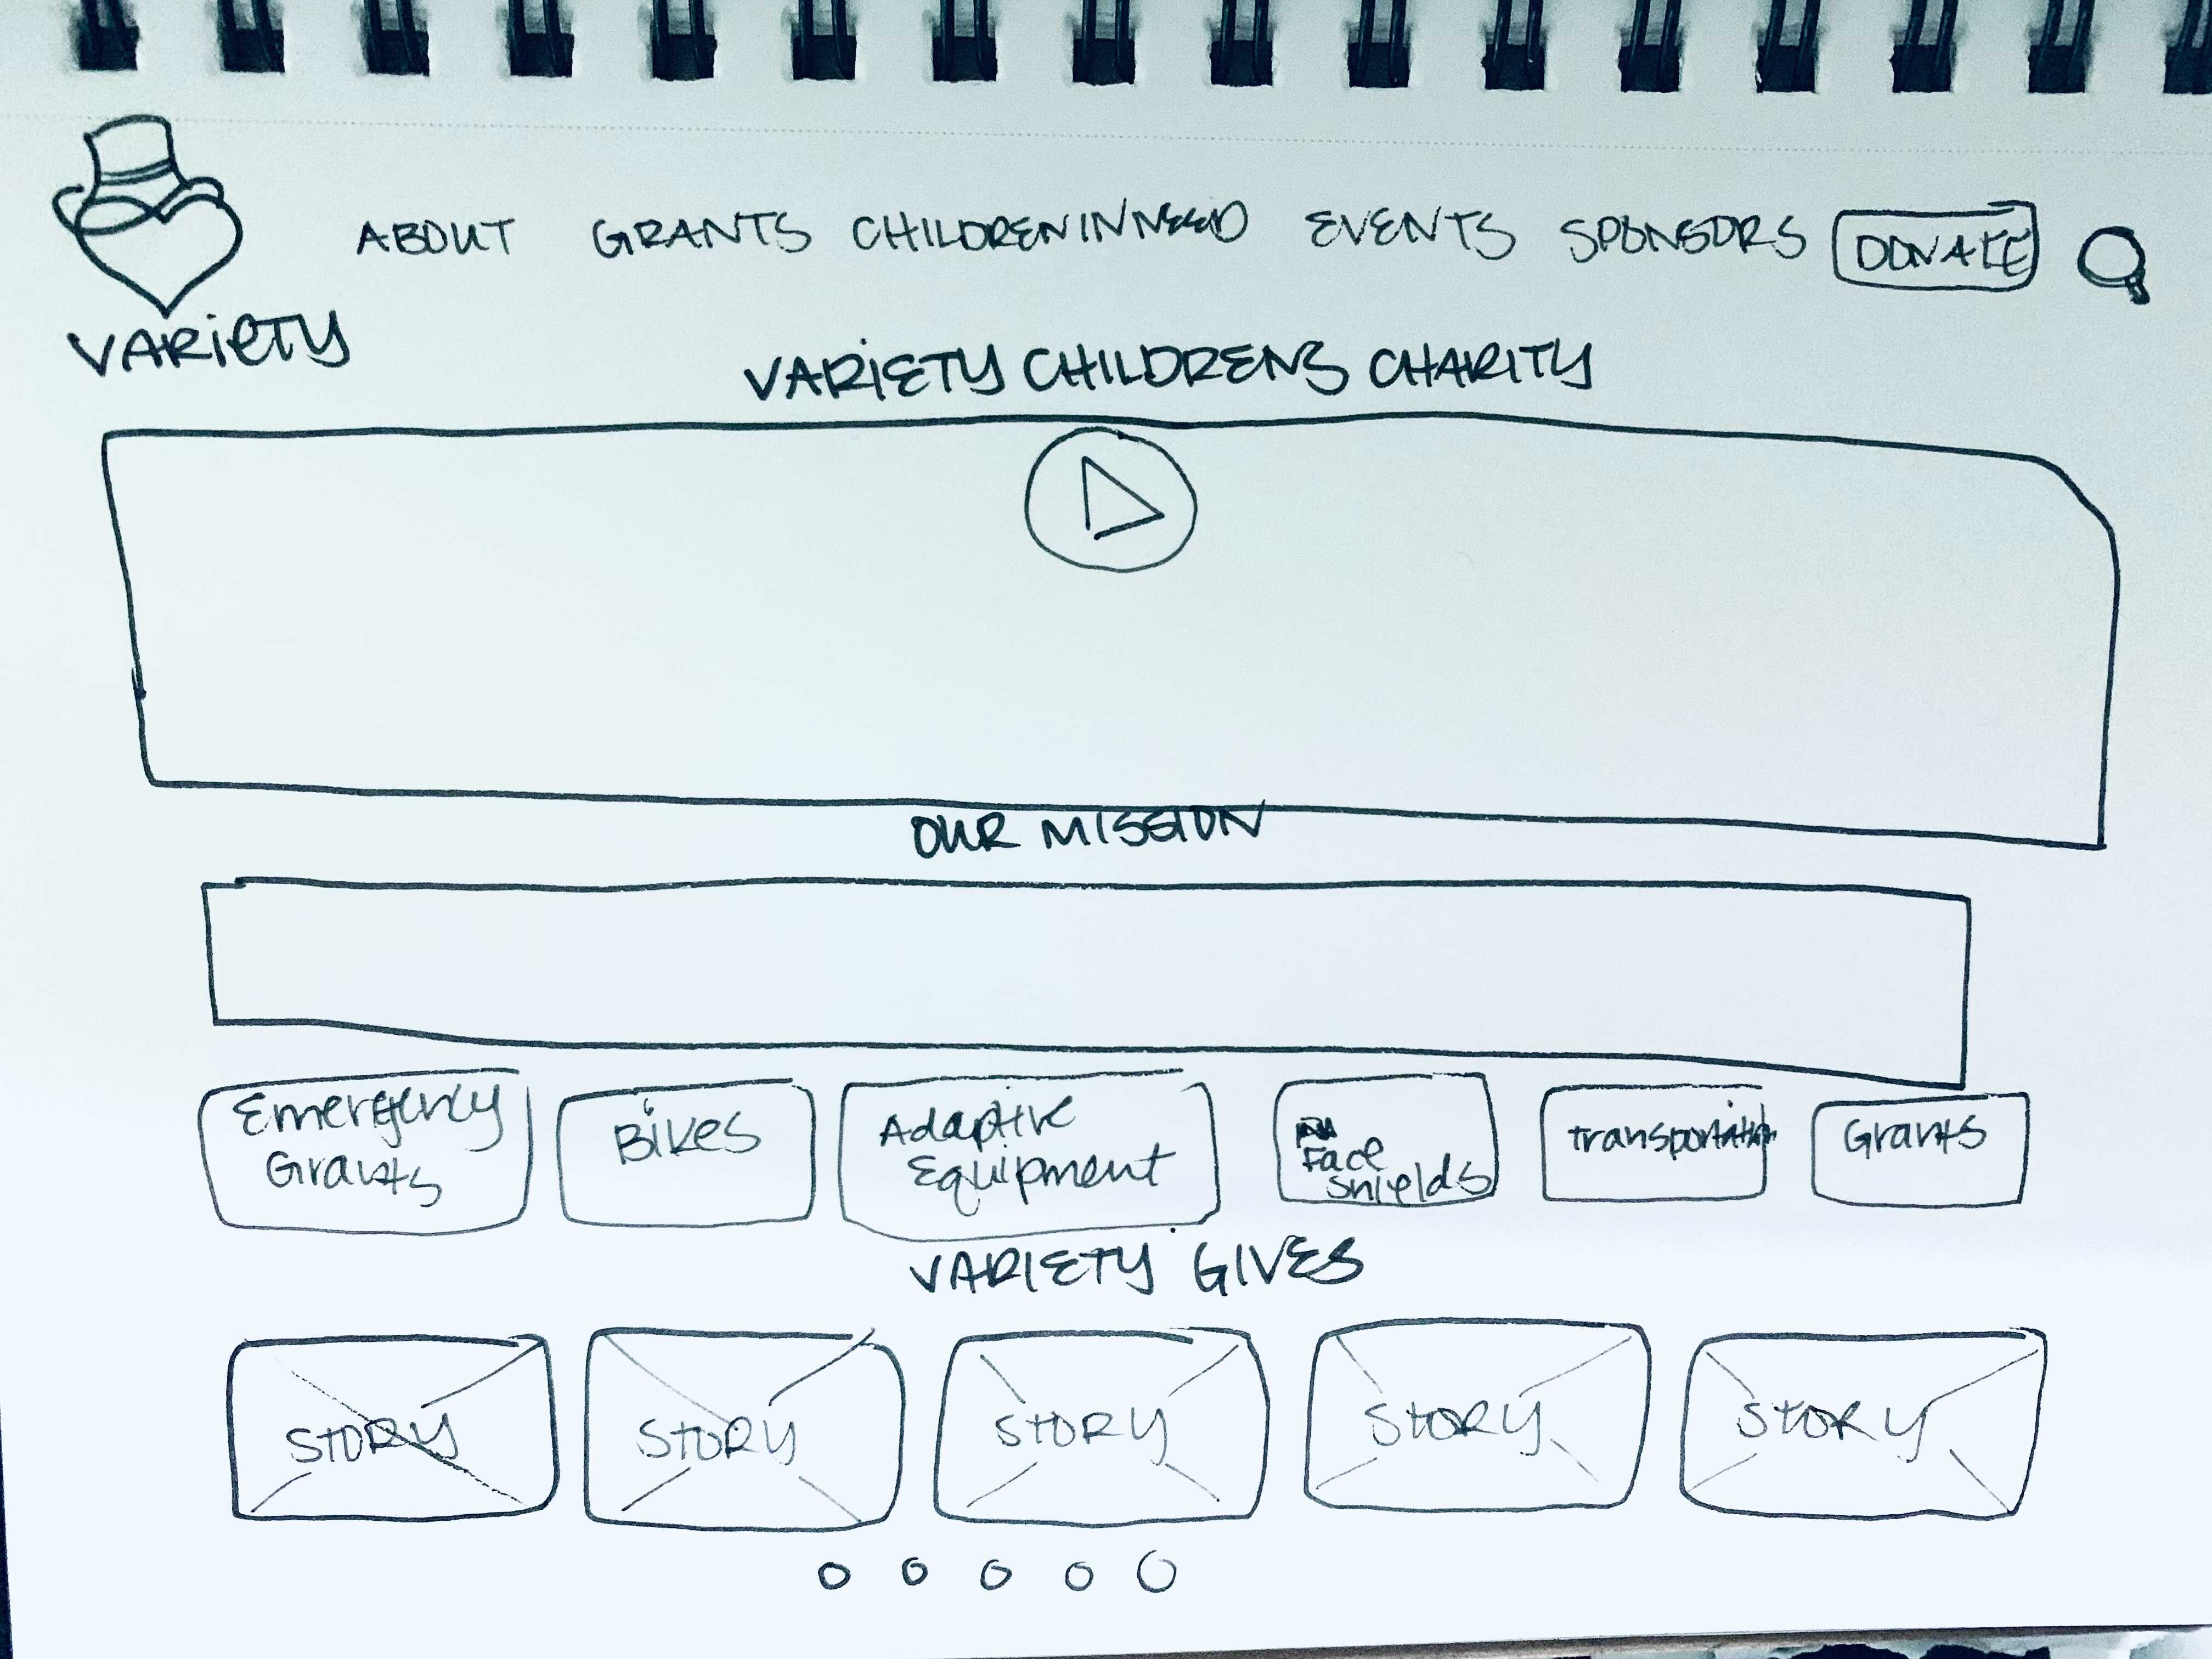 ABOUT GRANTS CHILDREN IN NEED EVENTS SPONSORS DONATE
VARIETY
VARIETY CHILDRENS CHARITY
OUR MISSION
Emergency
Grants
Bikes
Adaptive
Equipment
Face
Shields
transportation
Grants
VARIETY GIVES
STORY STORY STORY STORY STORY